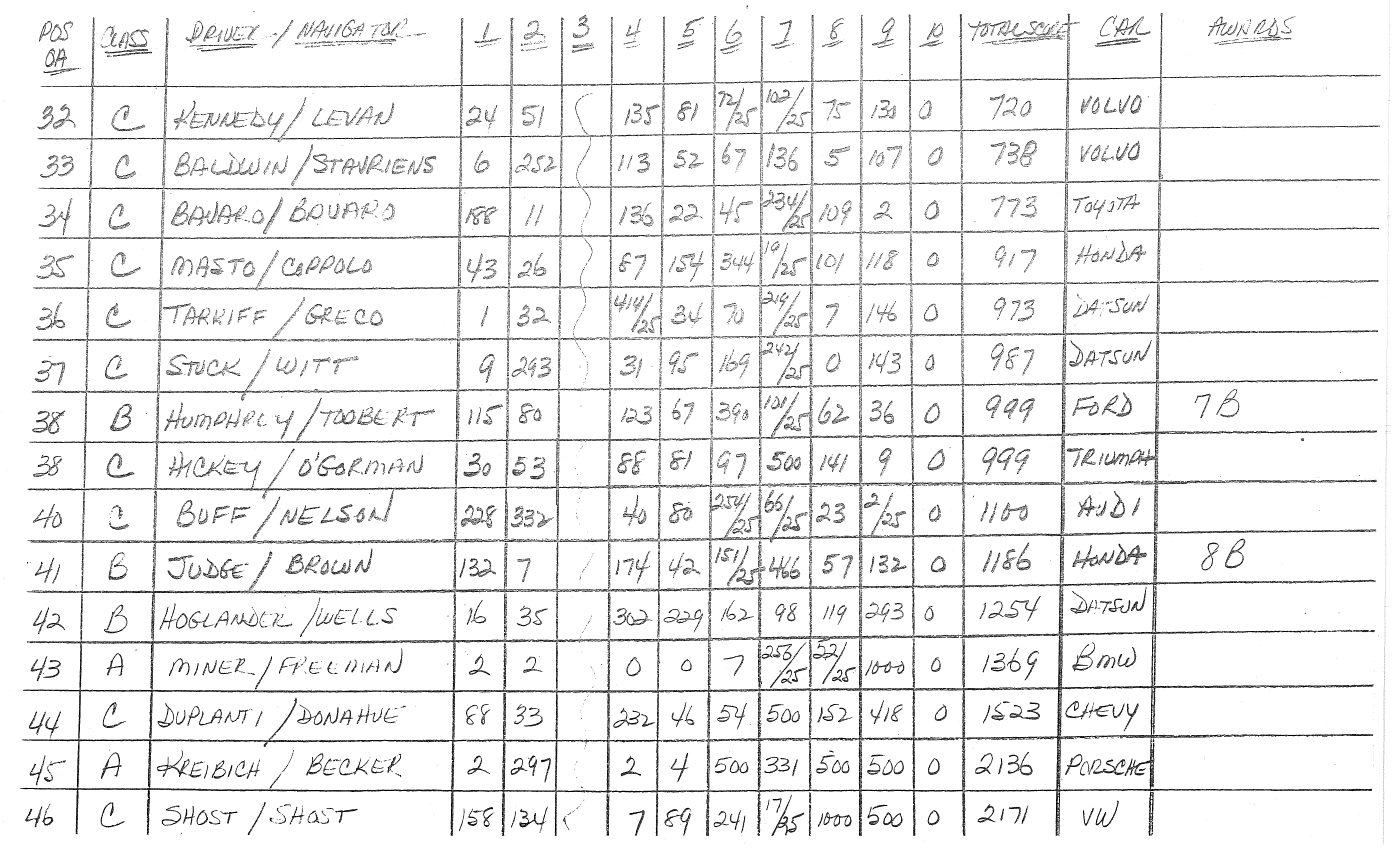 POS OA CLASS DRIVER / NAVIGATOR 1 2 3 4 5 6 7 8 9 10 TOTAL SCORE CAR AWARDS
32 C KENNEDY / LEVAN 24 51 135 81 72/25 102/25 75 130 0 720 VOLVO
33 C BALDWIN / STAVRIENS 6 252 113 52 67 136 5 107 0 738 VOLVO
34 C BAVARO / BOVARO 188 11 136 22 45 234/25 109 2 0 773 TOYOTA
35 C MASTO / COPPOLO 43 26 87 154 344 19/25 101 118 0 917 HONDA
36 C TARRIFF / GRECO 1 32 414/25 34 70 219/25 7 146 0 973 DATSUN
37 C STUCK / WITT 9 293 31 95 169 242/25 0 143 0 987 DATSUN
38 B HUMPHREY / TOOBERT 115 80 123 67 390 101/25 62 36 0 999 FORD 7B
38 C HICKEY / O'GORMAN 30 53 88 81 97 500 141 9 0 999 TRIUMPH
40 C BUFF / NELSON 228 332 40 80 254/25 66/25 23 2/25 0 1100 AUDI
41 B JUDGE / BROWN 132 7 174 42 151/25 466 57 132 0 1186 HONDA 8B
42 B HOGLANDER / WELLS 16 35 302 229 162 98 119 293 0 1254 DATSUN
43 A MINER / FREEMAN 2 2 0 0 7 256/25 52/25 1000 0 1369 BMW
44 C DUPLANTI / DONAHUE 88 33 232 46 54 500 152 418 0 1523 CHEVY
45 A KREIBICH / BECKER 2 297 2 4 500 331 500 500 0 2136 PORSCHE
46 C SHOST / SHOST 158 134 7 89 241 17/25 1000 500 0 2171 VW